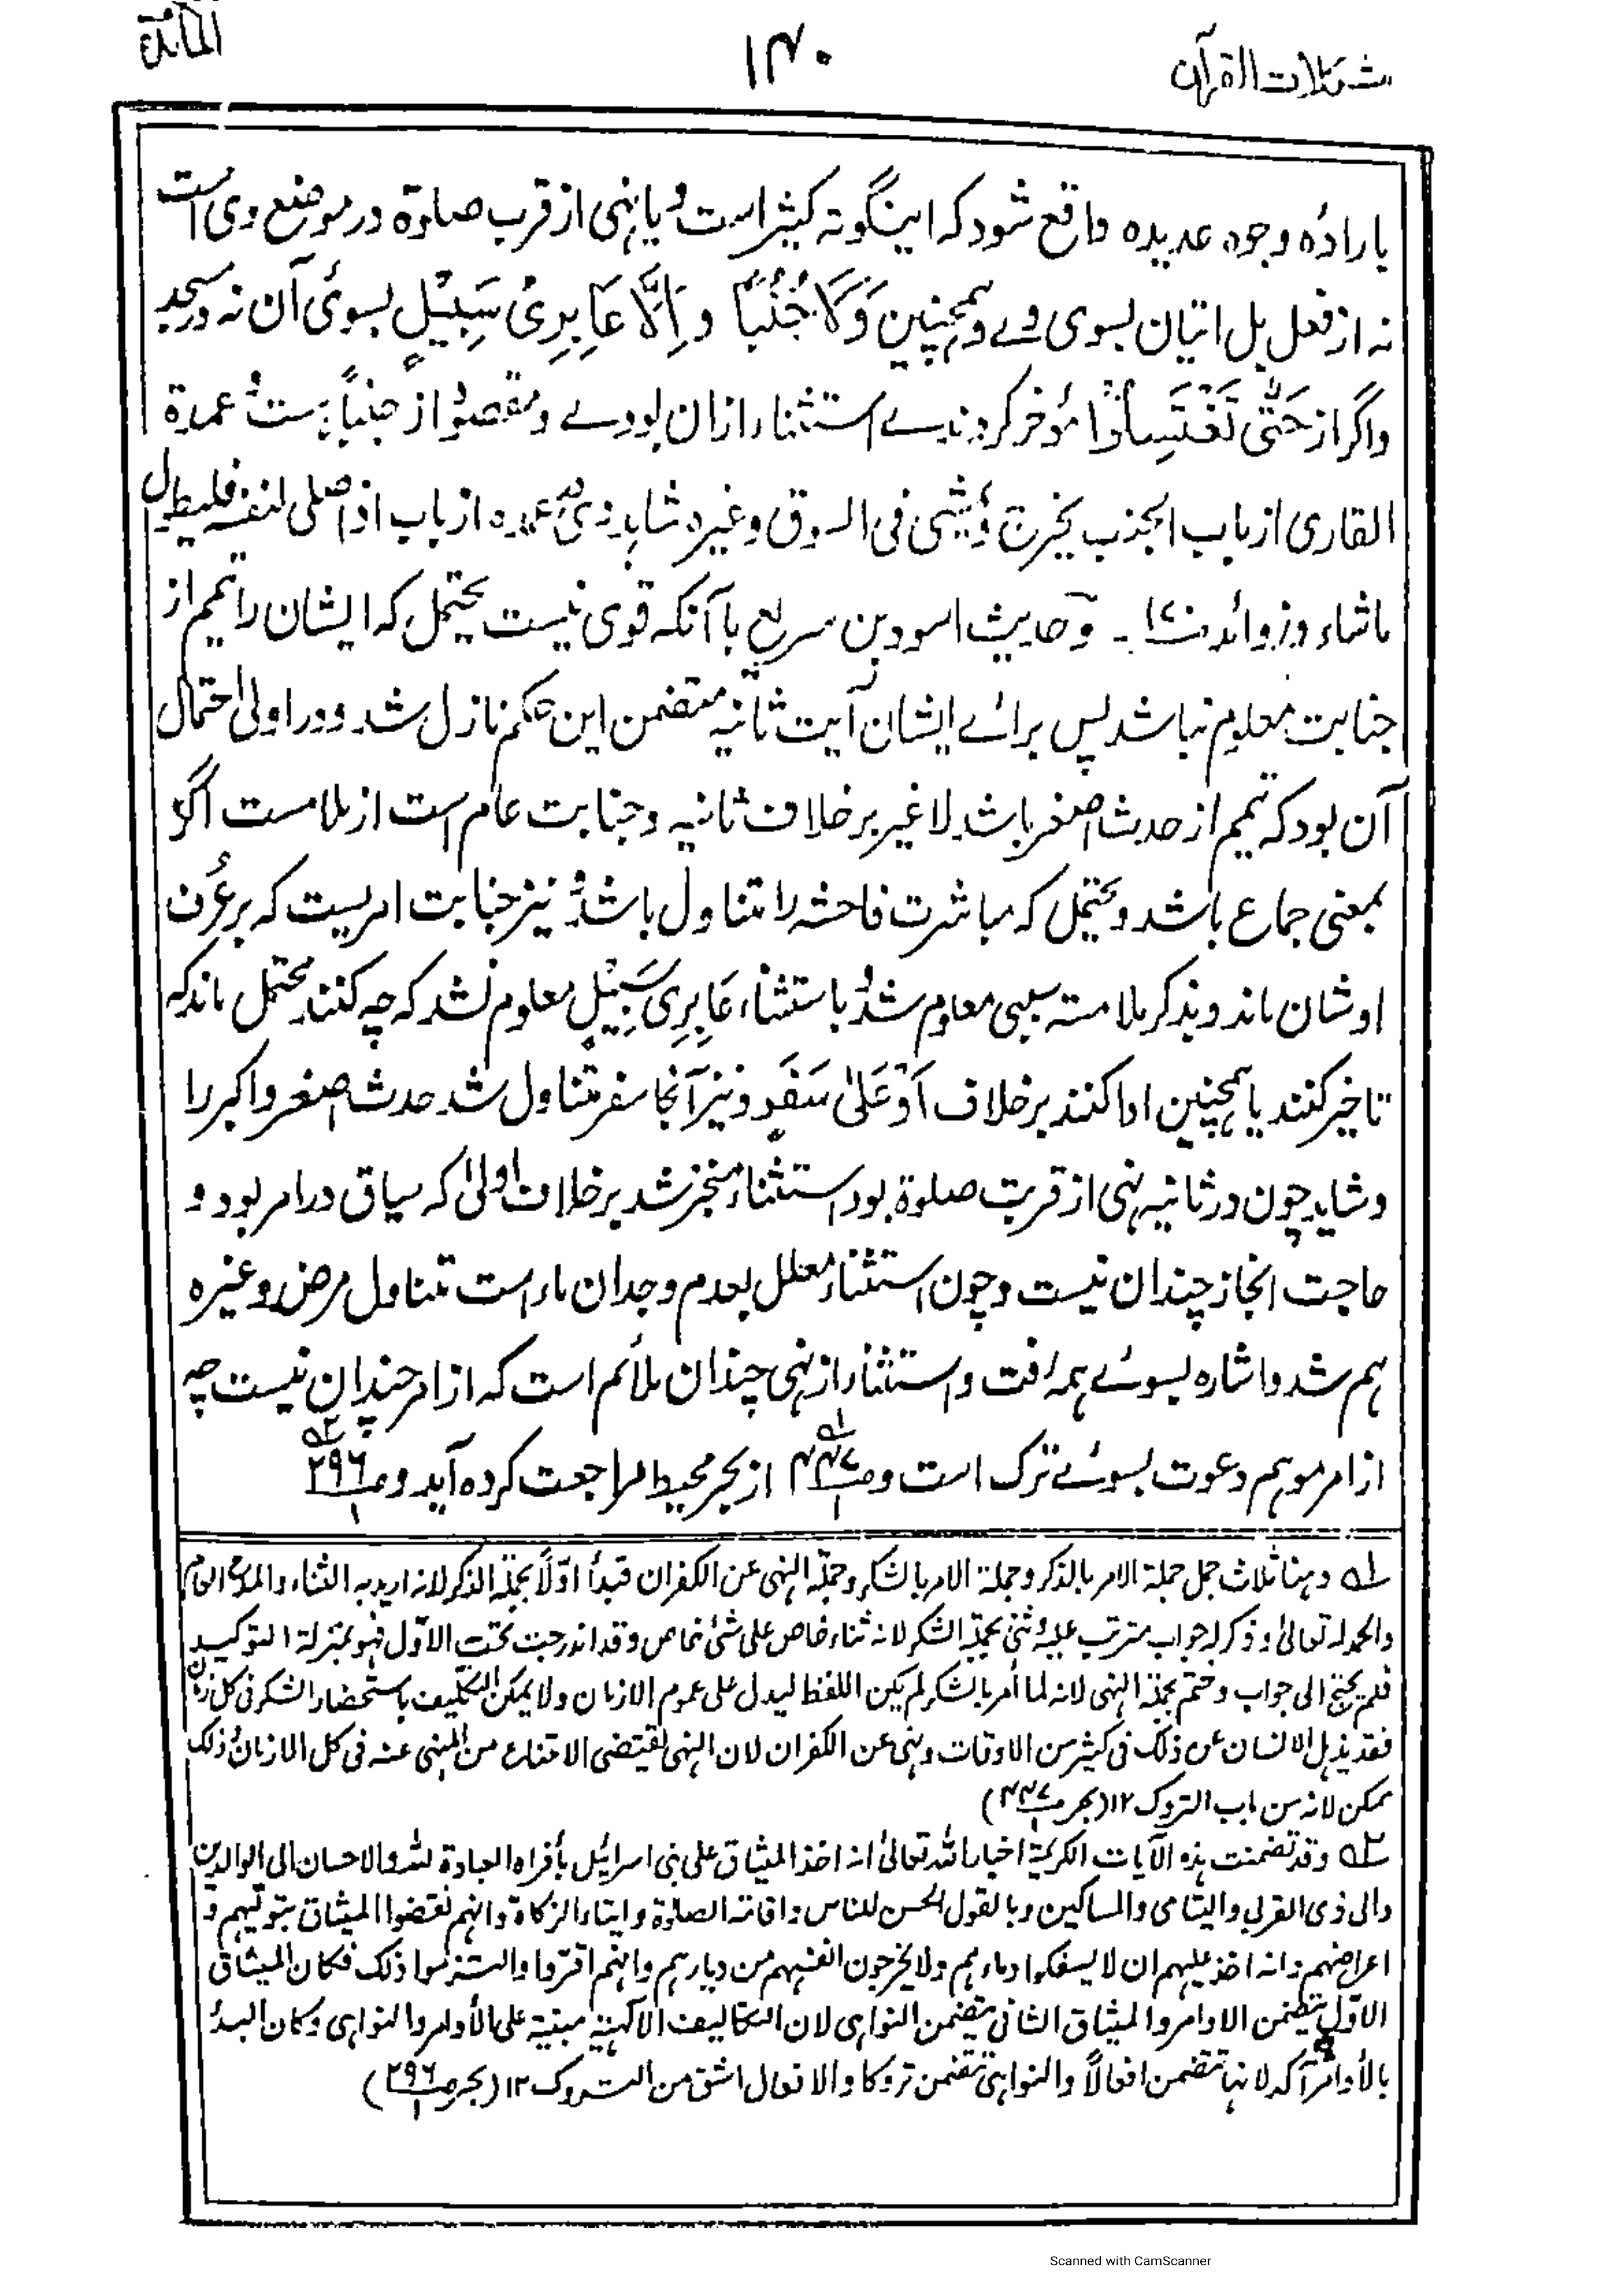 مشکلات القرآن
۱۴۰
المائدة
بارادۂ وجوہ عدیدہ واقع شود کہ اینگونہ کثیر است و یا نہی از قرب صلوۃ در موضع وی است
نہ از فعل بل اتیان بسوی وے و ہمچنین وَلَا جُنُبًا و اِلَّا عَابِرِیْ سَبِیْلٍ بسوئ آن نہ در مسجد
واگر از حَتّٰی تَغْتَسِلُوْا مؤخر کردندے استثناء ازان بودے و مقصود از جنباً ہست عمدۃ
القاری از باب الجنب یخرج ویمشی فی السوق وغیرہ شاید وی عمدہ از باب اذا صلی لنفسہ فلیطول
ماشاء وزوائد ـ وحدیث اسود بن سریع با آنکہ قوی نیست یحتمل کہ ایشان را تیمم از
جنابت معلوم نباشد پس برائے ایشان آیت ثانیہ متضمن این حکم نازل شد ودر اولی احتمال
آن بود کہ تیمم از حدث اصغر باشد لا غیر بر خلاف ثانیہ وجنابت عام است از ملامست اگر
بمعنی جماع باشد ویحتمل کہ مباشرت فاحشہ را تناول باشد و نیز جنابت امریست کہ بر عرف
اوشان ماند وبذکر ملامستہ سببی معلوم شد و باستثناء عَابِرِیْ سَبِیْلٍ معلوم نشد کہ چہ کنند محتمل ماند کہ
تاخیر کنند یا ہمچنین ادا کنند بر خلاف اَوْ عَلٰی سَفَرٍ ونیز آنجا سفر متناول شد حدث اصغر واکبر را
وشاید چون در ثانیہ نہی از قربت صلوۃ بود استثناء منجز شد بر خلاف اولیٰ کہ سیاق در امر بود و
حاجت انجاز چندان نیست وچون استثناء معلل بعدم وجدان ماء است تناول مرض وغیرہ
ہم شد واشارہ بسوئے ہمہ رفت واستثناء از نہی چندان ملائم است کہ از امر چندان نیست چہ
از امر موہم دعوت بسوئے ترک است و ص۴۴۷/۱ از بحر محیط مراجعت کردہ آید و ص۲۹۶/۱
۱؎ وہنا ثلاث جمل جملة الامر بالذکر وجملة الامر بالشکر وجملة النہی عن الکفران فبدأ اوّلًا بجملة الذکر لانہ ارید بہ الثناء والمدح العام
والحمد لہ تعالیٰ وذکر لہ جواب مترتب علیہ وثنی بجملة الشکر لانہ ثناء خاص علی شئ خاص وقد اندرجت تحت الاوّل فہو بمنزلة التوکید
فلم یحتج الی جواب وختم بجملة النہی لانہ لما أمر بالشکر لم یکن اللفظ لیدل علی عموم الازمان ولا یمکن التکلیف باستحضار الشکر فی کل زمان
فقد یذہل الانسان عن ذلک فی کثیر من الاوقات ونہی عن الکفران لان النہی یقتضی الامتناع من المنہی عنہ فی کل الازمان وذلک
ممکن لانہ من باب التروک ۱۲ (بحر ص۴۴۷/۱)
۲؎ وقد تضمنت ہذہ الآیات الکریمة اخبار اللہ تعالیٰ انہ اخذ المیثاق علی بنی اسرائیل بأفراد العبادة للہ والاحسان الی الوالدین
والی ذی القربی والیتامی والمساکین وبالقول الحسن للناس واقامة الصلوة وایتاء الزکاة وانہم نقضوا المیثاق بتولیہم و
اعراضہم وانہ اخذ علیہم ان لا یسفکوا دماءہم ولا یخرجون انفسہم من دیارہم وانہم اقرّوا والتزموا ذلک فکان المیثاق
الاوّل یتضمن الاوامر والمیثاق الثانی یتضمن النواہی لان التکالیف الآلہیة مبنیة علی الأوامر والنواہی وکان البدأ
بالأوامر آکد لانہا تتضمن افعالاً والنواہی تتضمن تروکا والافعال اشق من التروک ۱۲ (بحر ص۲۹۶/۱)
Scanned with CamScanner